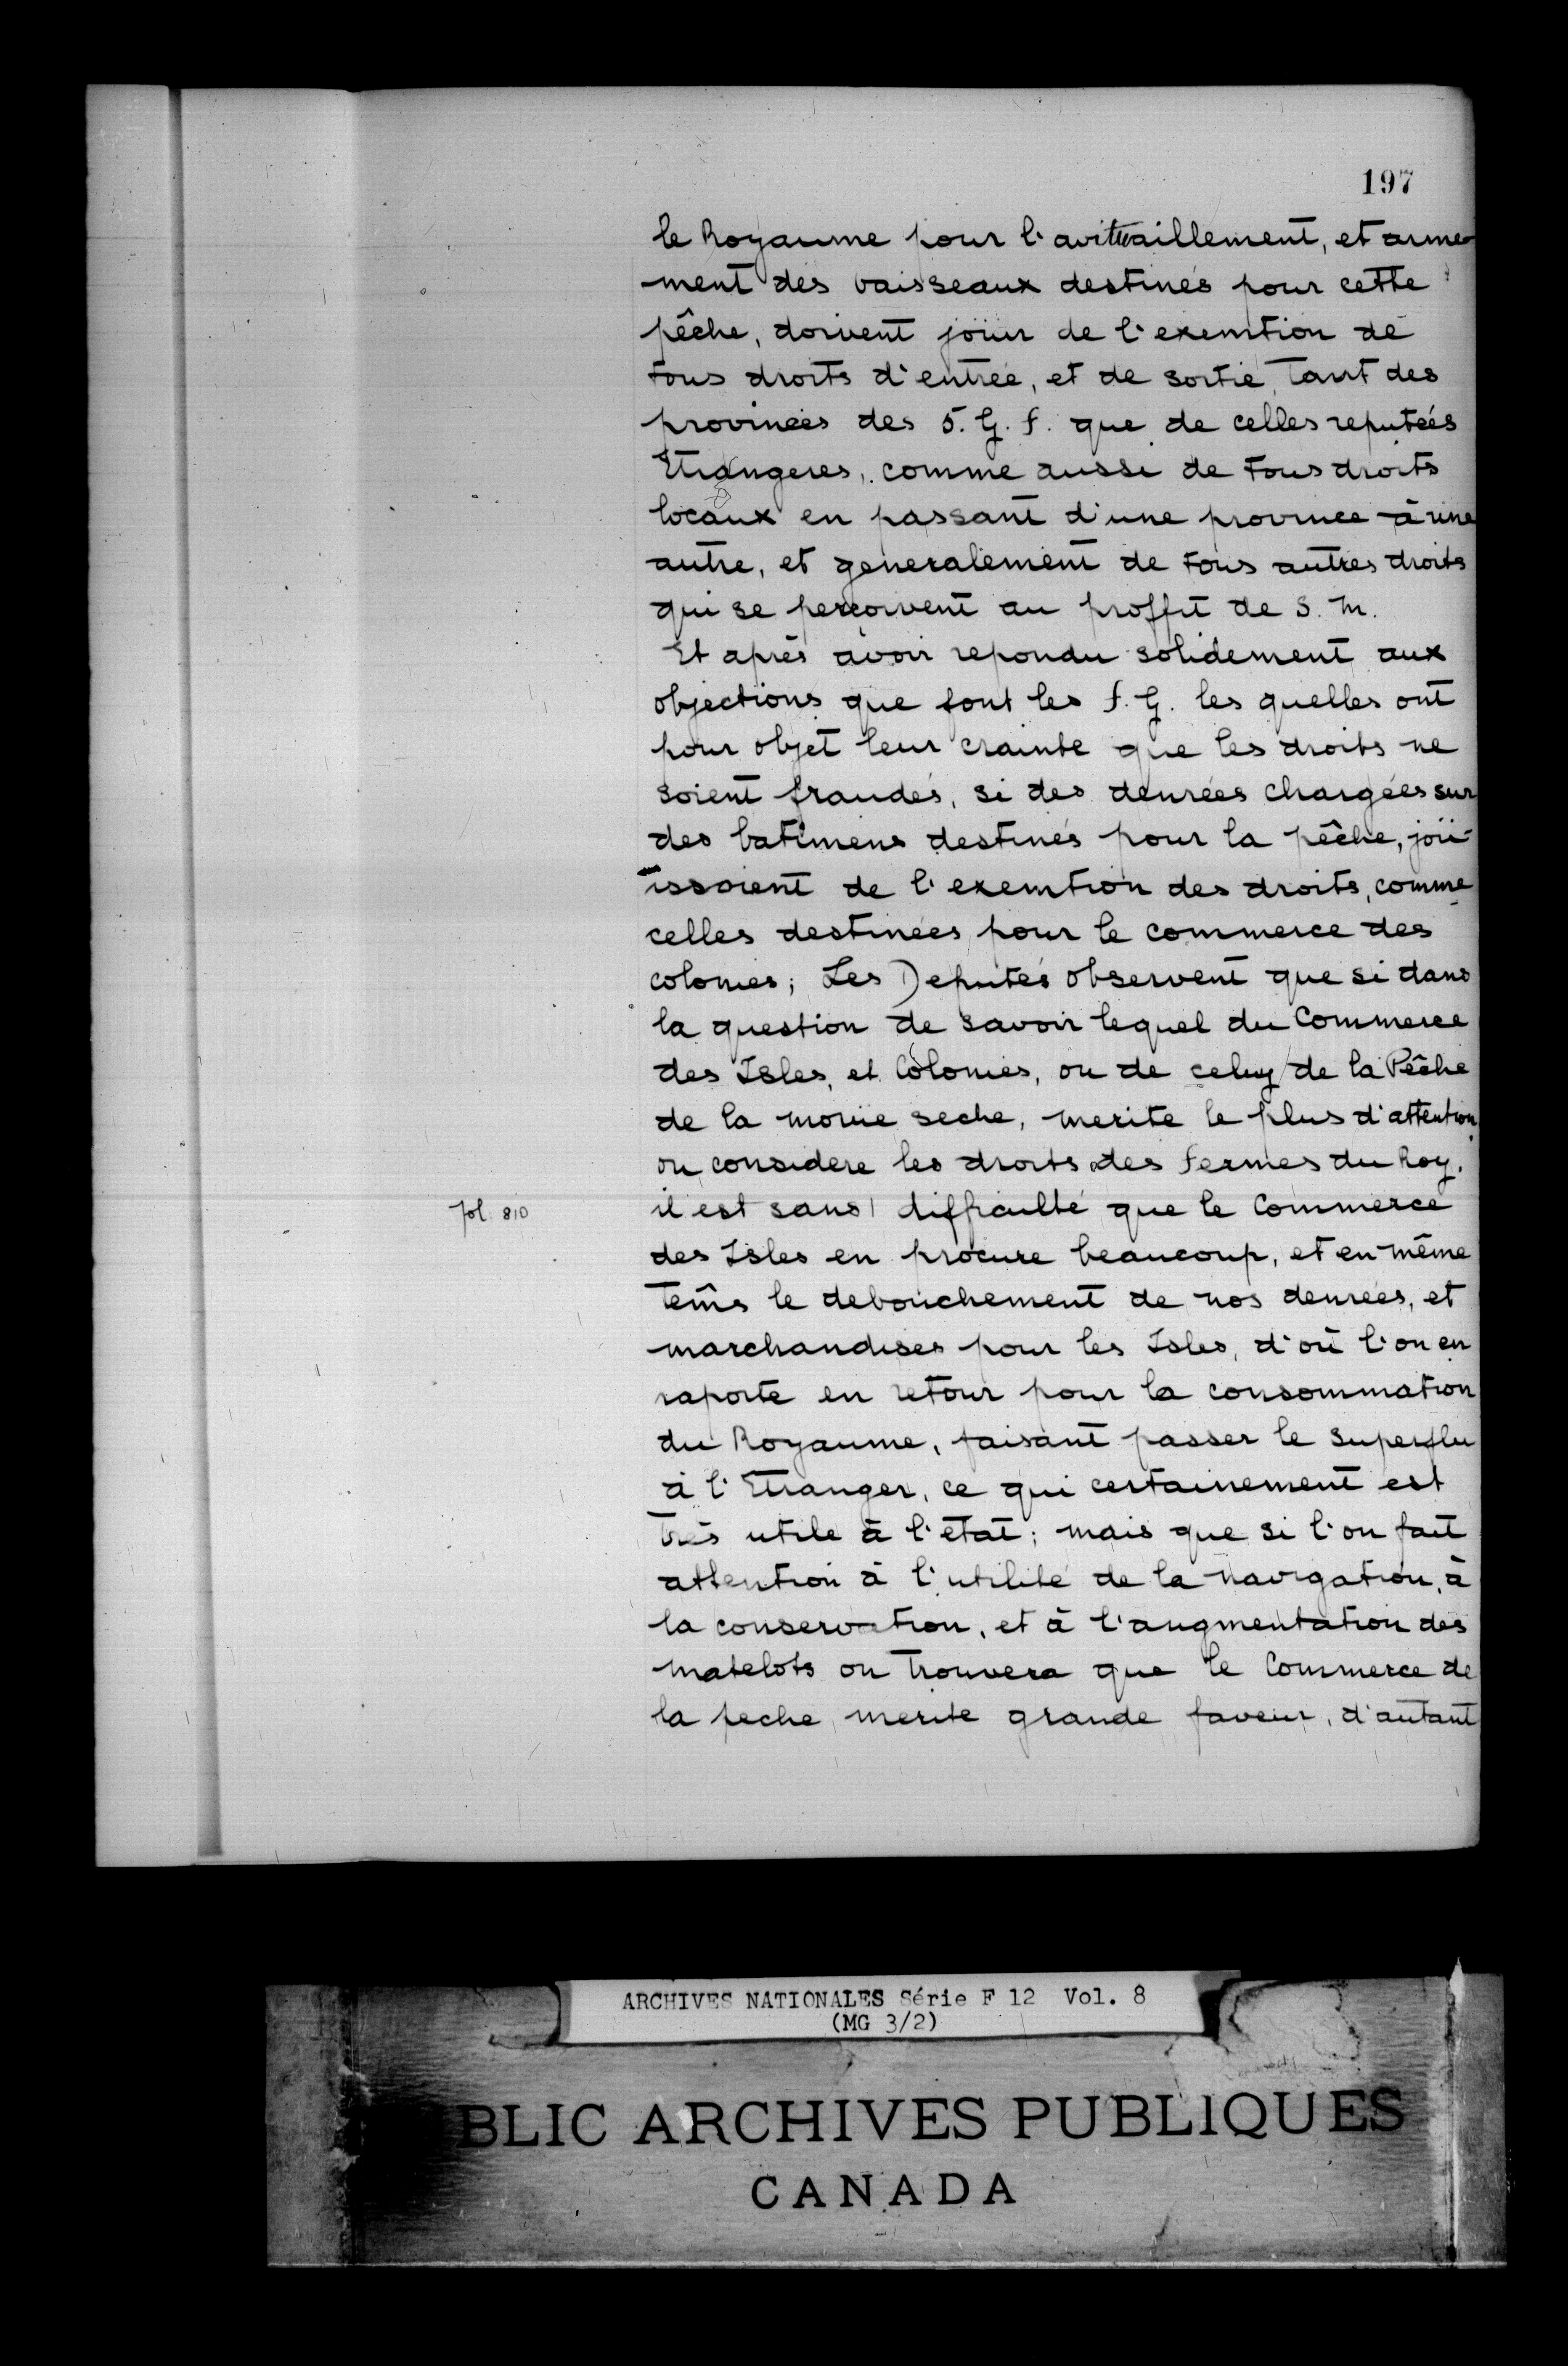 197
le Royaume pour l'avittuaillement, et arme-
ment des vaisseaux destinés pour cette
pêche, doivent joüir de l'exemtion de
tous droits d'entrée, et de sortie, tant des
provinces des 5. G. f. que de celles reputées
Etrangeres, comme aussi de tous droits
locaux en passant d'une province à une
autre, et generalement de tous autres droits
qui se perçoivent au proffit de S. M.
Et après avoir repondu solidement aux
objections que font les f. G. les quelles ont
pour objet leur crainte que les droits ne
soient fraudés, si des denrées chargées sur
des batimens destinés pour la pêche, joü-
issoient de l'exemtion des droits, comme
celles destinées pour le commerce des
colonies; Les Deputés observent que si dans
la question de savoir lequel du Commerce
des Isles, et Colonies, ou de celuy de la Pêche
de la morüe seche, merite le plus d'attention
on considere les droits des fermes du Roy,
fol. 810
il est sans | difficulté que le Commerce
des Isles en procure beaucoup, et en même
tems le debouchement de nos denrées, et
marchandises pour les Isles, d'où l'on en
raporte en retour pour la consommation
du Royaume, faisant passer le superflu
à l'Etranger, ce qui certainement est
très utile à l'état; mais que si l'on fait
attention à l'utilité de la navigation, à
la conservation, et à l'augmentation des
matelots on trouvera que le Commerce de
la peche merite grande faveur, d'autant
ARCHIVES NATIONALES Série F 12 Vol. 8
(MG 3/2)
BLIC ARCHIVES PUBLIQUES
CANADA